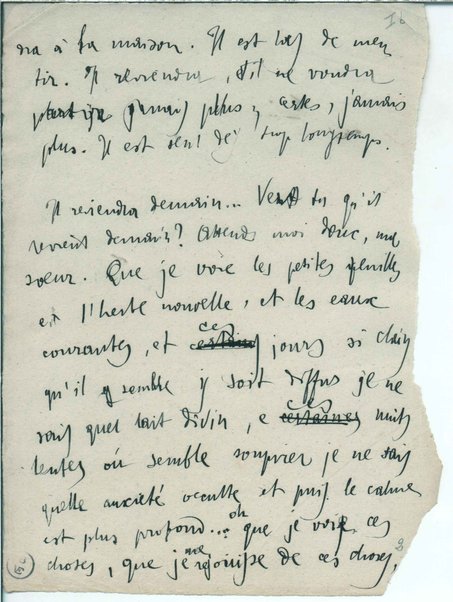 I b
ra à la maison. Il est las de men
tir. Il reviendra, il ne voudra
partir jamais plus, certes, jamais
plus. Il est seul de trop longtemps.
Il reviendra demain... Veux tu qu'il
revient demain? Attends moi donc, ma
soeur. Que je voie les petites feuilles
et l'herbe nouvelle, et les eaux
ces
courantes, et certains jours si clairs
qu'il semble y soit diffus je ne
sais quel lait divin, e
ces
certaines nuits
lentes où semble soupirer je ne sais
quelle anxiété occulte et puis le calme
est plus profond... oh que je voie ces
choses, que je me réjouisse de ces choses,